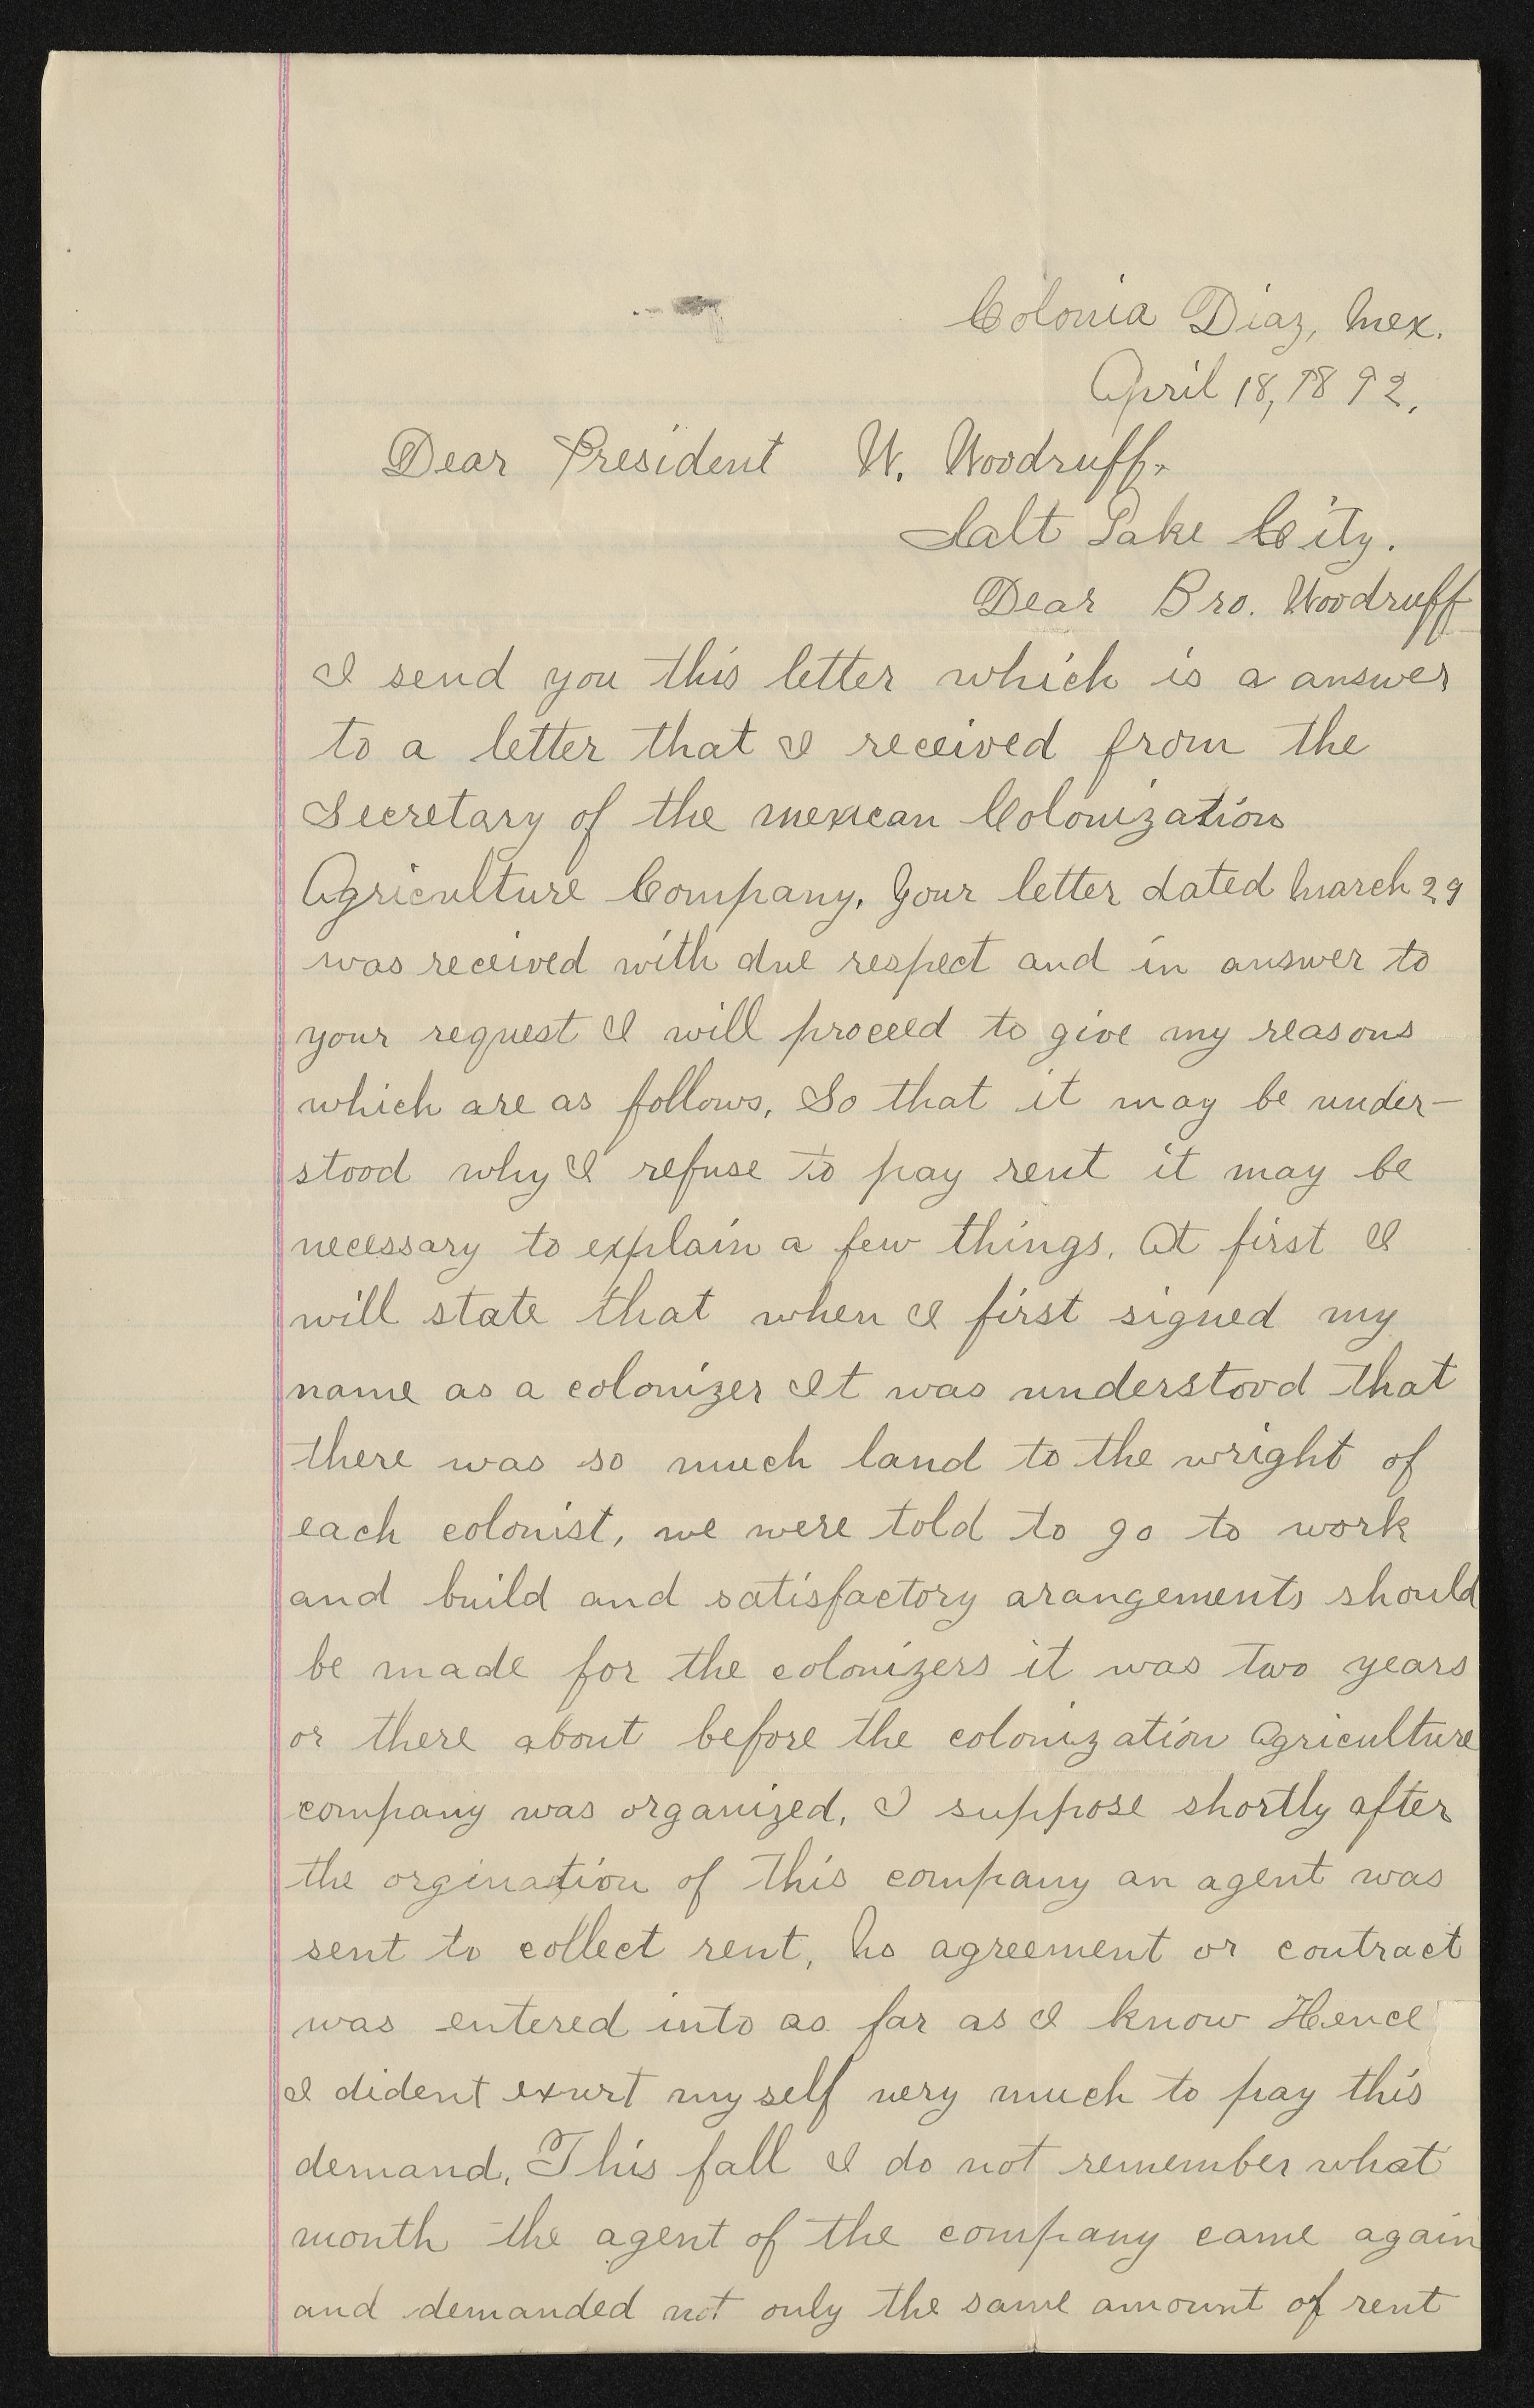 Colonia Diaz, Mex.
April 18, 1892.
Dear President W. Woodruff.
Salt Lake City.
Dear Bro. Woodruff
I send you this letter which is a answer
to a letter that I received from the
Secretary of the mexican Colonization
Agriculture Company. Your letter dated March 29
was received with due respect and in answer to
your request I will proceed to give my reasons
which are as follows, So that it may be under-
stood why I refuse to pay rent it may be
necessary to explain a few things. At first I
will state that when I first signed my
name as a colonizer It was understood that
there was so much land to the wright of
each colonist, we were told to go to work
and build and satisfactory arangements should
be made for the colonizers it was two years
or there about before the colonization Agriculture
company was organized, I suppose shortly after
the orgination of this company an agent was
sent to collect rent, No agreement or contract
was entered into as far as I know Hence
I dident exurt my self very much to pay this
demand. This fall I do not remember what
month the agent of the company came again
and demanded not only the same amount of rent